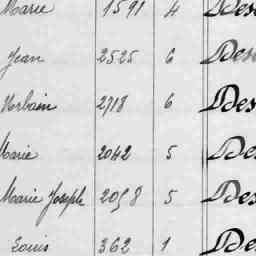 Marie 1591 4 Des
Jean 2525 6 Des
Urbain 2718 6 Des
Marie 2042 5 Des
Marie Joseph 2098 5 Des
Louis 362 1 Des